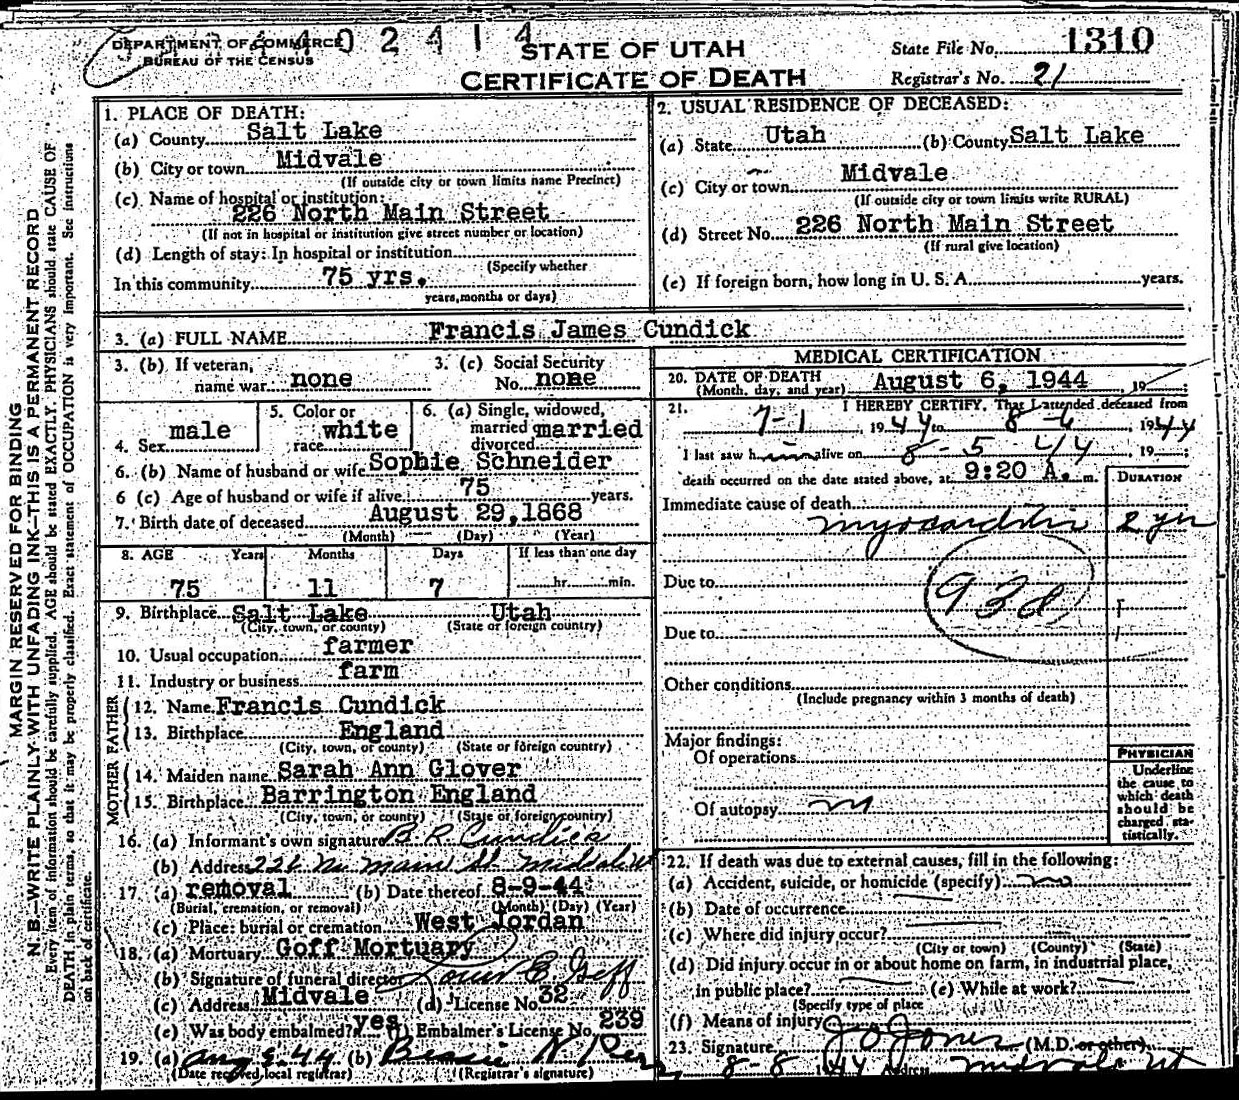 DEPARTMENT OF COMMERCE
BUREAU OF THE CENSUS
402414
STATE OF UTAH
CERTIFICATE OF DEATH
State File No. 1310
Registrar's No. 21
MARGIN RESERVED FOR BINDING
N. B.—WRITE PLAINLY WITH UNFADING INK—THIS IS A PERMANENT RECORD
Every item of information should be carefully supplied. AGE should be stated EXACTLY. PHYSICIANS should state CAUSE OF
DEATH in plain terms, so that it may be properly classified. Exact statement of OCCUPATION is very important. See instructions
on back of certificate.
1. PLACE OF DEATH:
(a) County Salt Lake
(b) City or town Midvale
(If outside city or town limits name Precinct)
(c) Name of hospital or institution:
226 North Main Street
(If not in hospital or institution give street number or location)
(d) Length of stay: In hospital or institution
(Specify whether
In this community 75 yrs.
years, months or days)
2. USUAL RESIDENCE OF DECEASED:
(a) State Utah (b) County Salt Lake
(c) City or town Midvale
(If outside city or town limits write RURAL)
(d) Street No. 226 North Main Street
(If rural give location)
(e) If foreign born, how long in U. S. A. years.
3. (a) FULL NAME Francis James Cundick
3. (b) If veteran,
name war none
3. (c) Social Security
No. none
4. Sex male
5. Color or
race white
6. (a) Single, widowed,
married
divorced married
6. (b) Name of husband or wife Sophie Schneider
6 (c) Age of husband or wife if alive 75 years.
7. Birth date of deceased August 29, 1868
(Month) (Day) (Year)
8. AGE Years Months Days If less than one day
75 11 7 hr. min.
9. Birthplace Salt Lake Utah
(City, town, or county) (State or foreign country)
10. Usual occupation farmer
11. Industry or business farm
FATHER
12. Name Francis Cundick
13. Birthplace England
(City, town, or county) (State or foreign country)
MOTHER
14. Maiden name Sarah Ann Glover
15. Birthplace Barrington England
(City, town, or county) (State or foreign country)
16. (a) Informant's own signature B. R. Cundick
(b) Address 226 No Main St. Midvale Ut
17 (a) removal (b) Date thereof 8-9-44
(Burial, cremation, or removal) (Month) (Day) (Year)
(c) Place: burial or cremation West Jordan
18. (a) Mortuary Goff Mortuary
(b) Signature of funeral director Louis E. Goff
(c) Address Midvale (d) License No. 32
(e) Was body embalmed? yes (f) Embalmer's License No. 239
19. (a) Aug 9-44 (b)
(Date received local registrar) (Registrar's signature)
MEDICAL CERTIFICATION
20. DATE OF DEATH
(Month, day, and year) August 6, 1944, 19
21. I HEREBY CERTIFY, That I attended deceased from
7-1, 1944 to 8-6 1944
I last saw him alive on 8-5 44, 19
death occurred on the date stated above, at 9:20 A. m.
DURATION
Immediate cause of death
myocarditis 2 yrs
Due to
93d
Due to
Other conditions
(Include pregnancy within 3 months of death)
Major findings:
Of operations
Of autopsy no
PHYSICIAN
Underline
the cause to
which death
should be
charged sta-
tistically.
22. If death was due to external causes, fill in the following:
(a) Accident, suicide, or homicide (specify) no
(b) Date of occurrence
(c) Where did injury occur?
(City or town) (County) (State)
(d) Did injury occur in or about home on farm, in industrial place,
in public place? (e) While at work?
(Specify type of place
(f) Means of injury
23. Signature J O Jones (M.D. or other)
8-8 1944 Address Midvale Ut